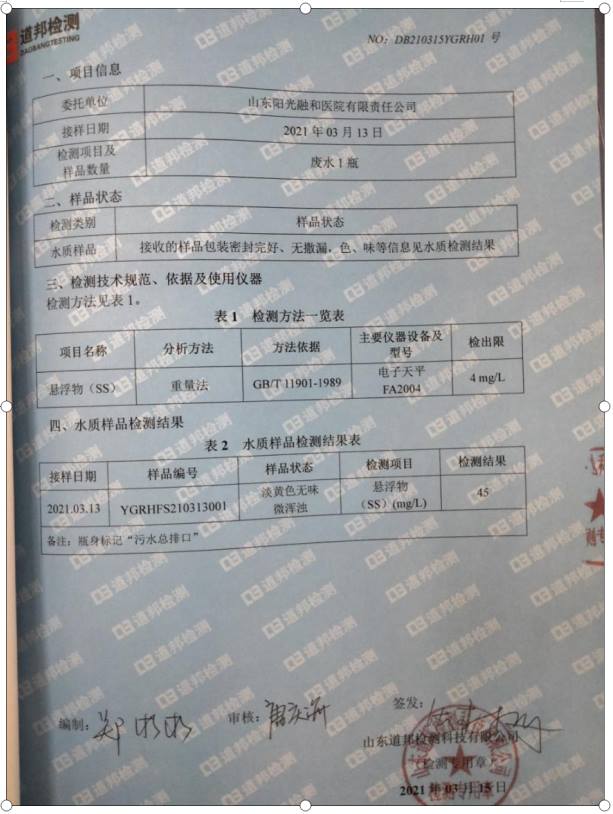 道邦检测
DAOBANGTESTING
NO：DB210315YGRH01 号
一、项目信息
委托单位 山东阳光融和医院有限责任公司
接样日期 2021 年 03 月 13 日
检测项目及
样品数量 废水 1 瓶
二、样品状态
检测类别 样品状态
水质样品 接收的样品包装密封完好、无撒漏，色、味等信息见水质检测结果
三、检测技术规范、依据及使用仪器
检测方法见表 1。
表 1 检测方法一览表
项目名称 分析方法 方法依据 主要仪器设备及
型号 检出限
悬浮物（SS） 重量法 GB/T 11901-1989 电子天平
FA2004 4 mg/L
四、水质样品检测结果
表 2 水质样品检测结果表
接样日期 样品编号 样品状态 检测项目 检测结果
2021.03.13 YGRHFS210313001 淡黄色无味
微浑浊 悬浮物
（SS）(mg/L) 45
备注：瓶身标记“污水总排口”
编制： 审核： 签发：
山东道邦检测科技有限公司
（检测专用章）
2021 年 03 月 15 日
检测专用章